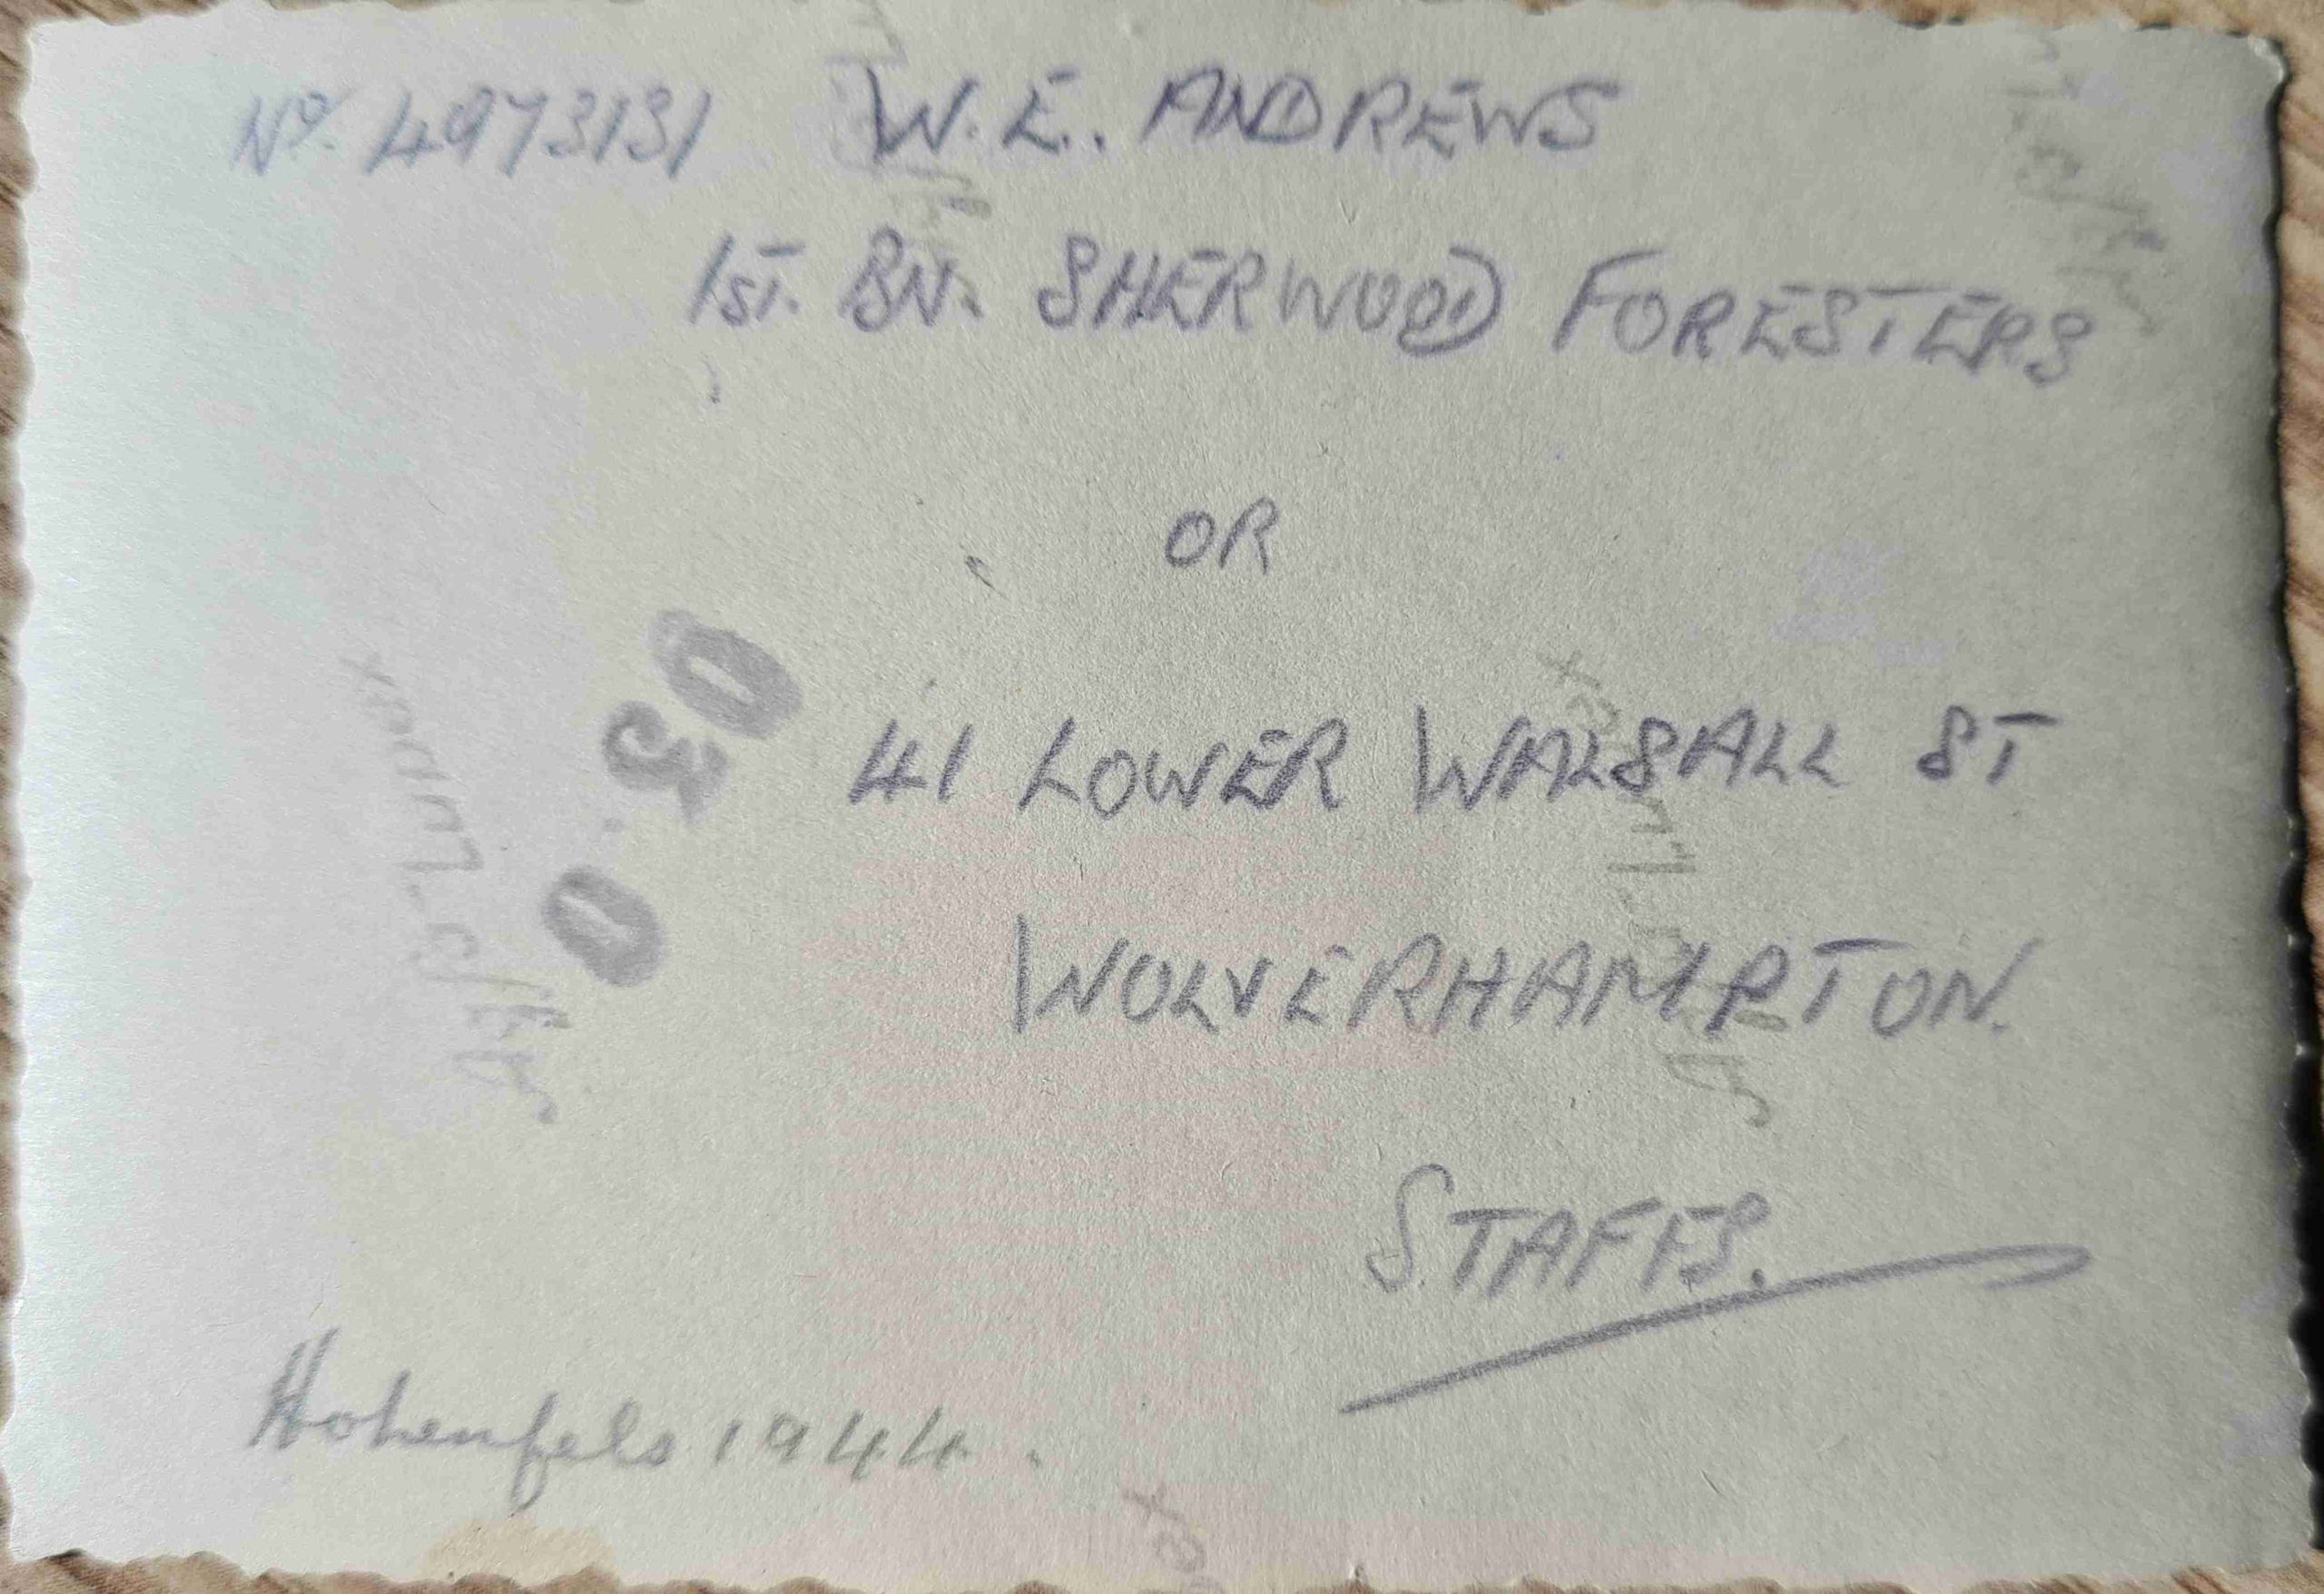 No. 4973131 W. E. ANDREWS
1ST. BN. SHERWOOD FORESTERS
OR
41 LOWER WALSALL ST
WOLVERHAMPTON.
STAFFS.
Hohenfels 1944.
Agfa-Lupex
Agfa-Lupex